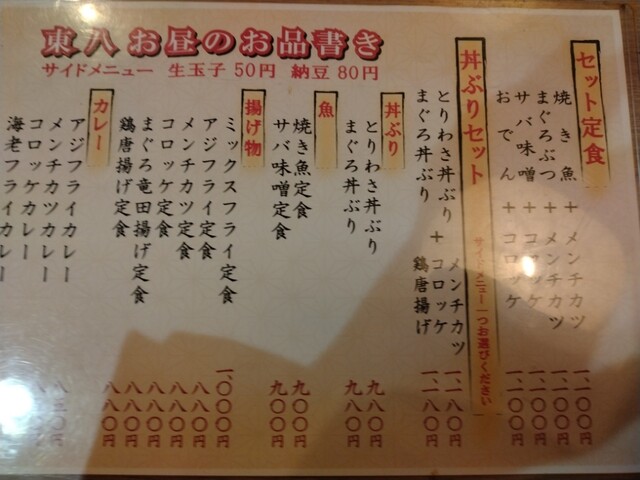 東八お昼のお品書き
サイドメニュー 生玉子 50円 納豆 80円
セット定食
焼き魚+メンチカツ 一、一〇〇円
まぐろぶつ+メンチカツ 一、一〇〇円
サバ味噌+コロッケ 一、一〇〇円
おでん+コロッケ 一、一〇〇円
丼ぶりセット サイドメニュー一つお選びください
とりわさ丼ぶり
まぐろ丼ぶり
+
メンチカツ 一、一八〇円
コロッケ
鶏唐揚げ 一、一八〇円
丼ぶり
とりわさ丼ぶり 九八〇円
まぐろ丼ぶり 九八〇円
魚
焼き魚定食 九〇〇円
サバ味噌定食 九〇〇円
揚げ物
ミックスフライ定食 一、〇〇〇円
アジフライ定食 八八〇円
メンチカツ定食 八八〇円
コロッケ定食 八八〇円
まぐろ竜田揚げ定食 八八〇円
鶏唐揚げ定食 八八〇円
カレー
アジフライカレー
メンチカツカレー
コロッケカレー
海老フライカレー